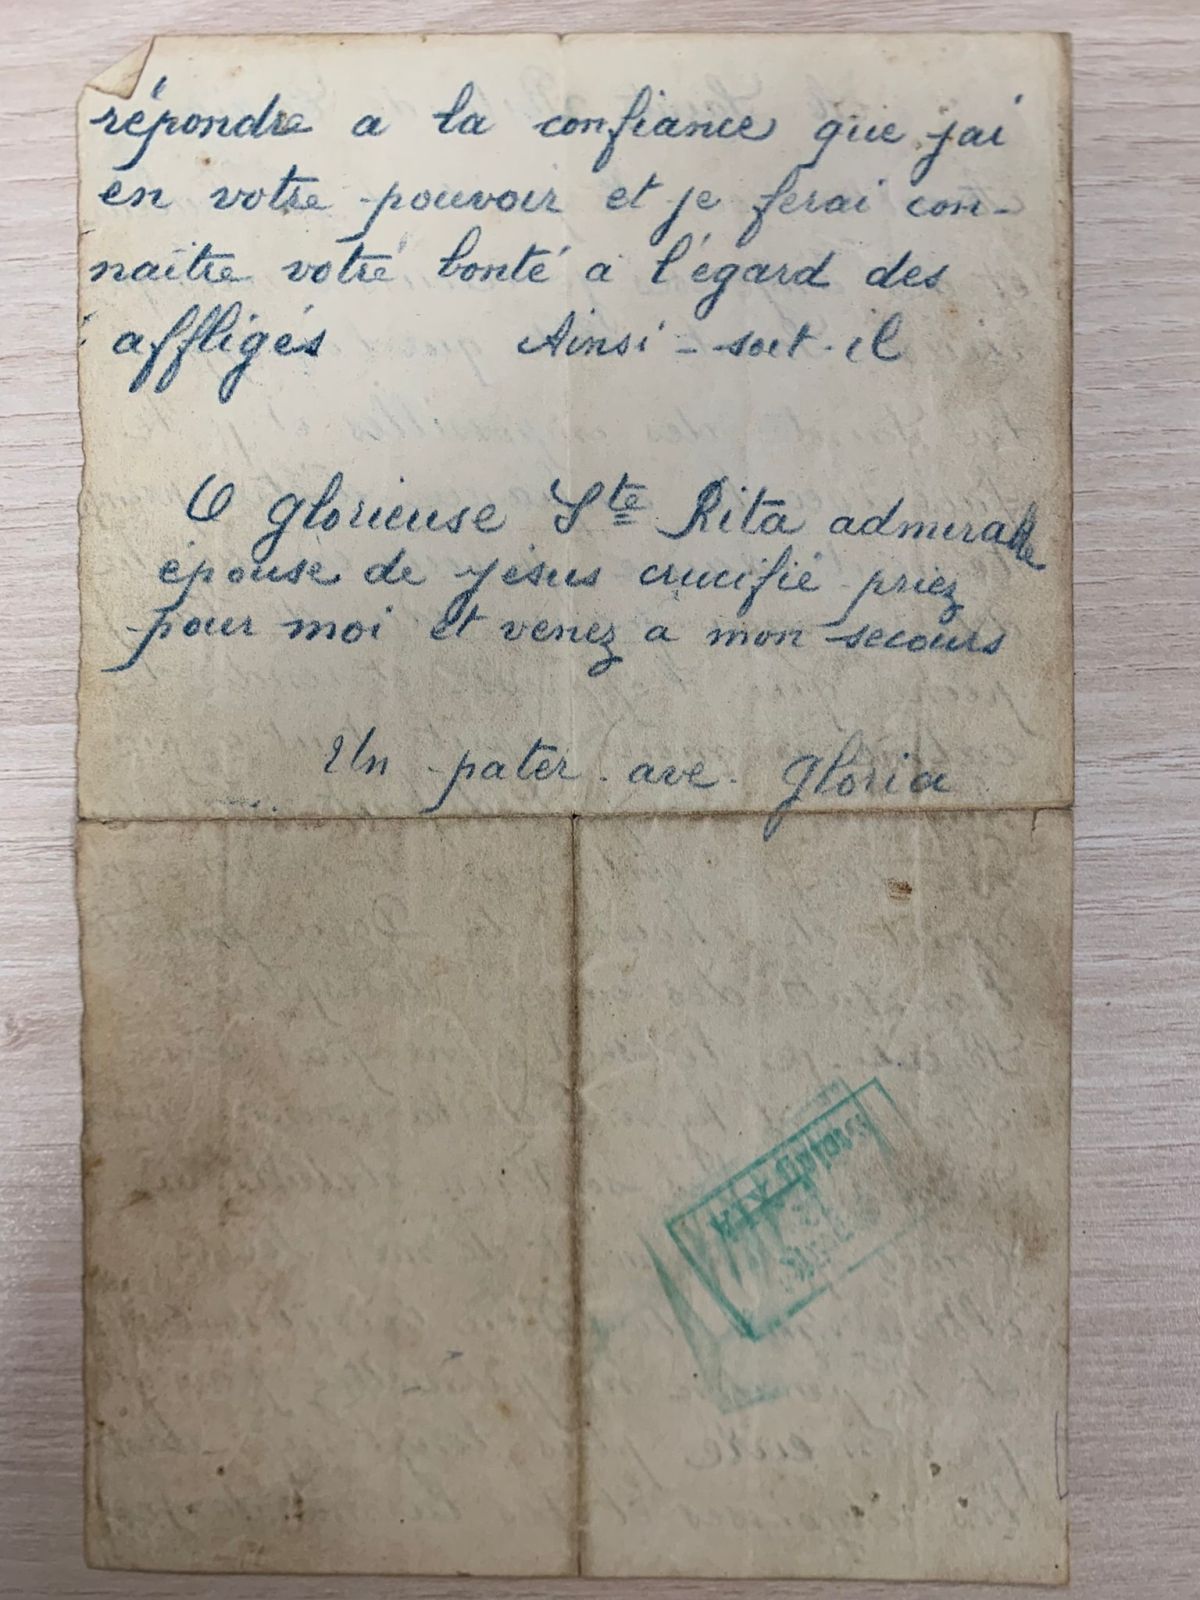 répondre a la confiance que jai
en votre pouvoir et je ferai con-
naître votre bonté a l'égard des
affligés Ainsi-soit-il
O glorieuse Ste Rita admirable
épouse de Jésus crucifié priez
pour moi et venez a mon secours
Un pater. ave. Gloria